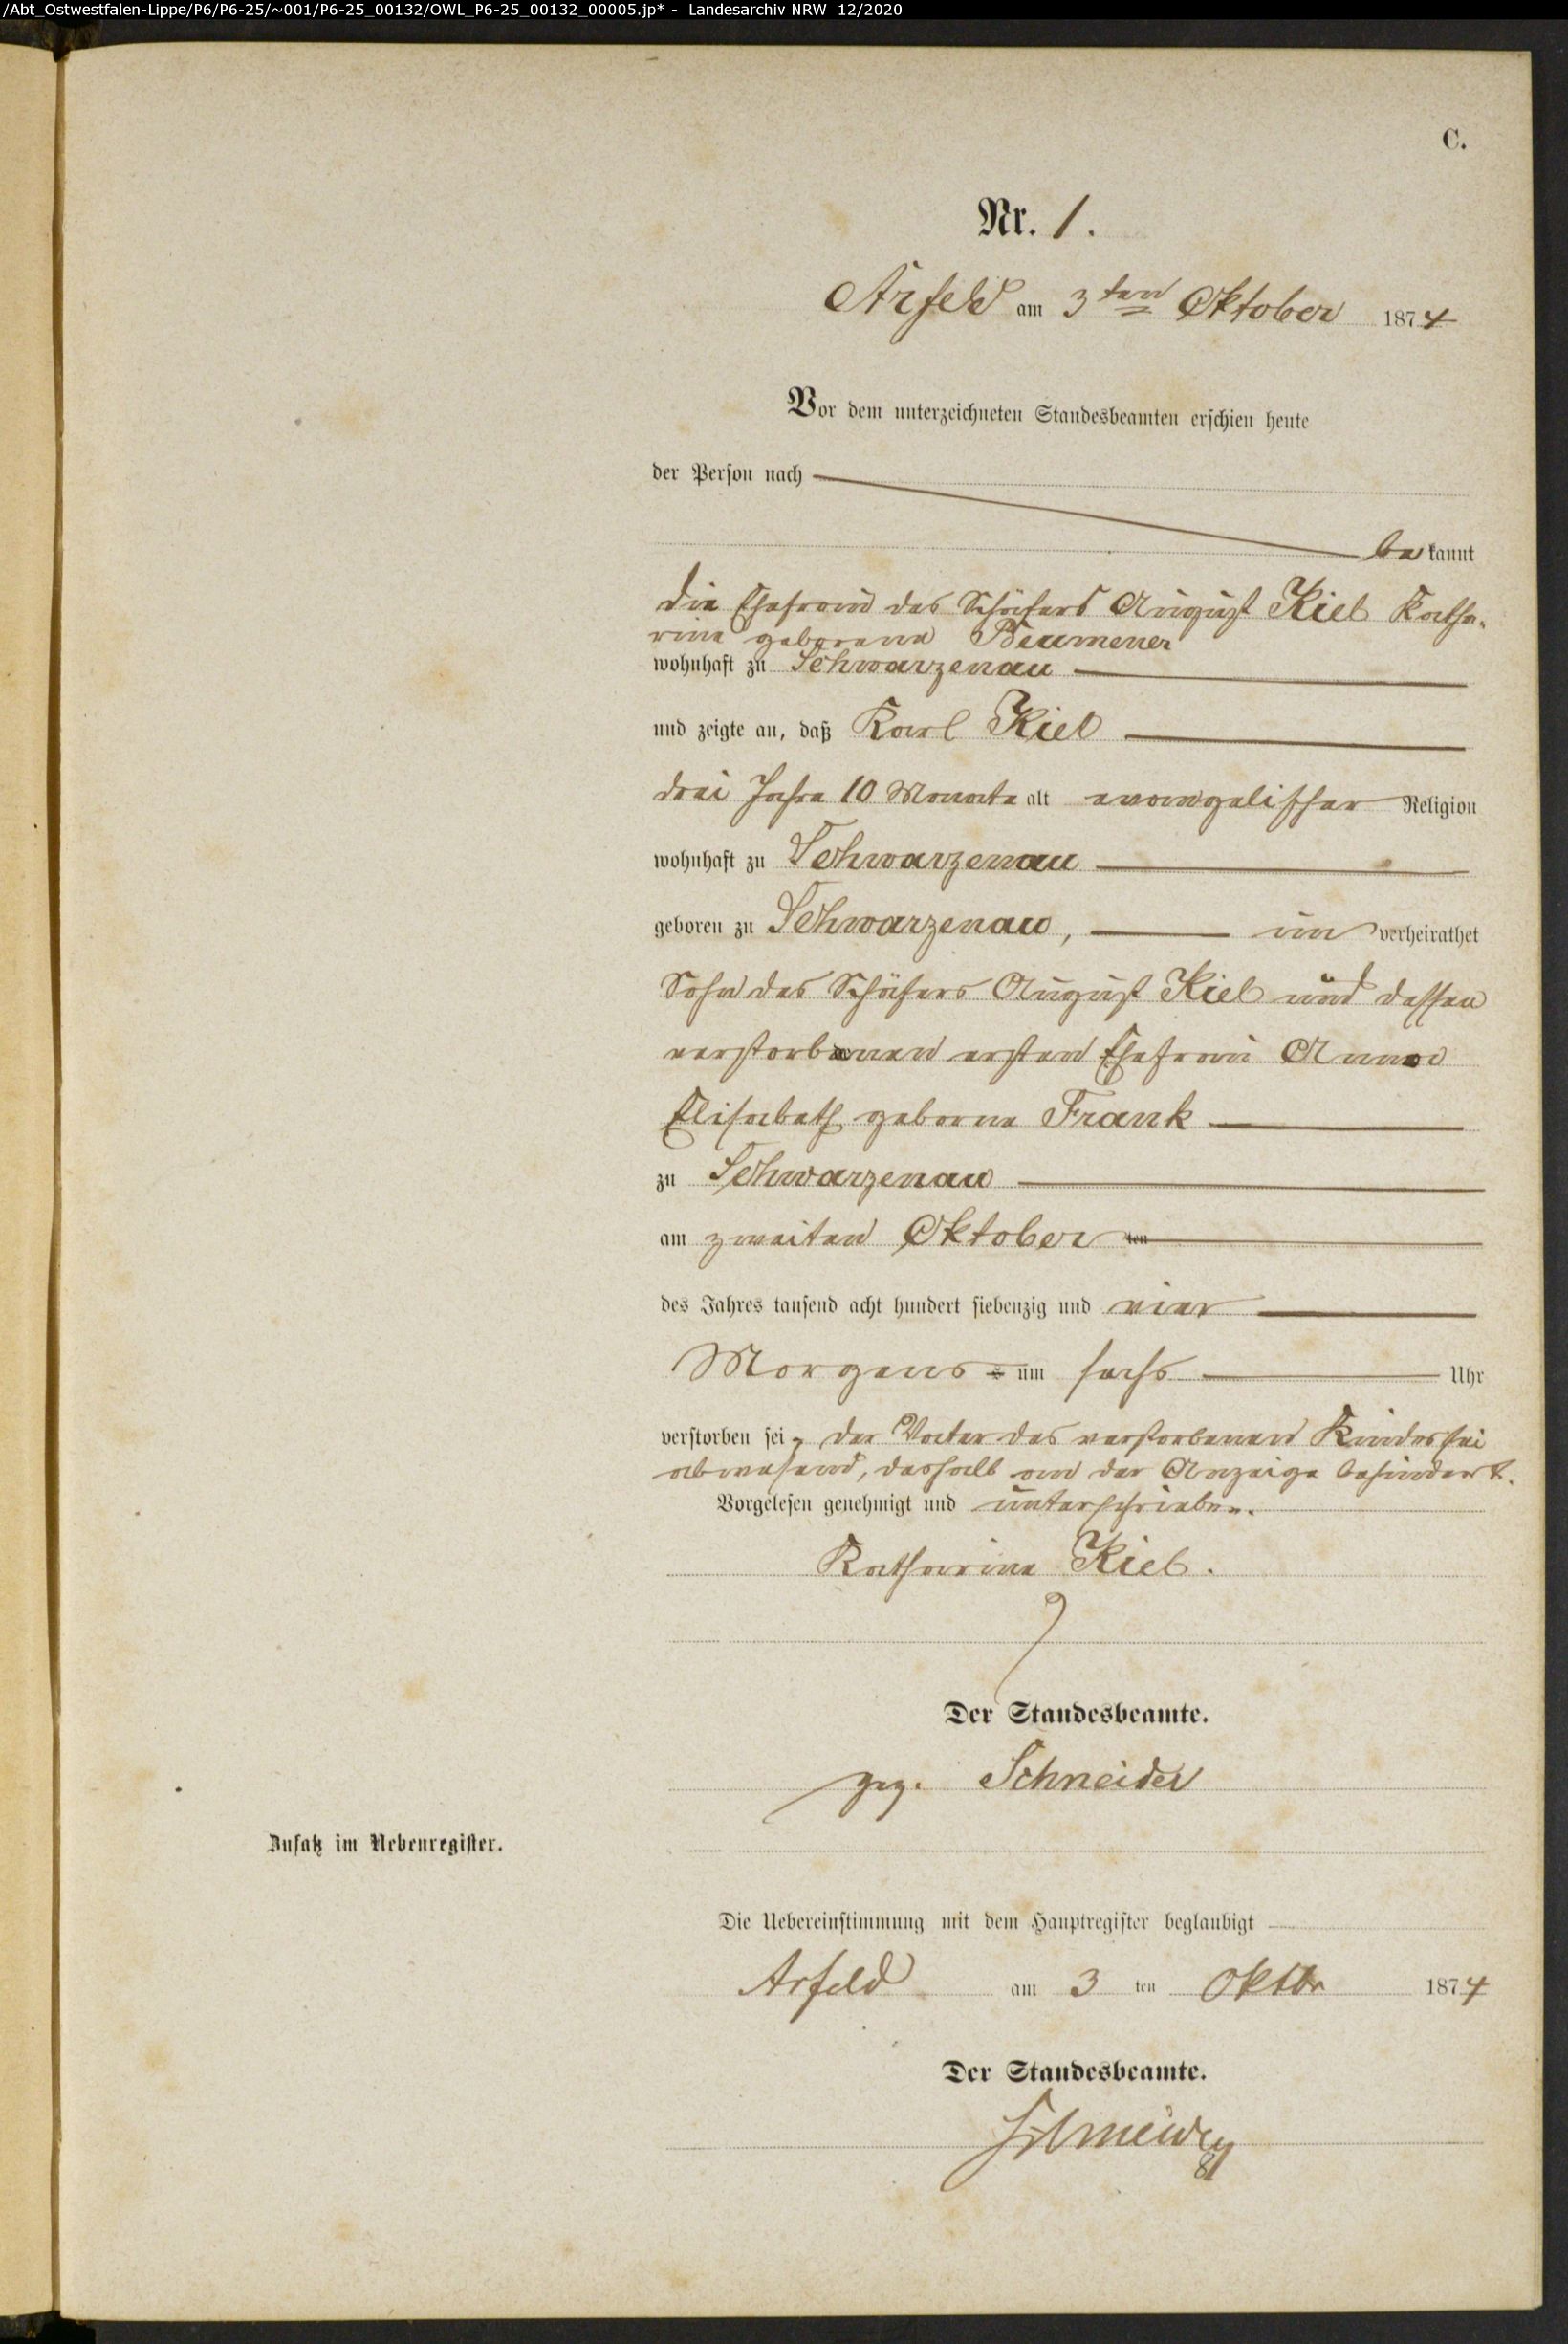 /Abt_Ostwestfalen-Lippe/P6/P6-25/~001/P6-25_00132/OWL_P6-25_00132_00005.jp* - Landesarchiv NRW 12/2020
C.
Nr. 1.
Arfeld am 3ten Oktober 1874
Vor dem unterzeichneten Standesbeamten erschien heute
der Person nach
bekannt
die Ehefrau des Schäfers August Kiel Katha-
rine geborene Beumener
wohnhaft zu Schwarzenau
und zeigte an, daß Karl Kiel
drei Jahre 10 Monate alt evangelischer Religion
wohnhaft zu Schwarzenau
geboren zu Schwarzenau, un verheirathet
Sohn des Schäfers August Kiel und dessen
verstorbenen ersten Ehefrau Anna
Elisabeth geborne Frank
zu Schwarzenau
am zweiten Oktober ten
des Jahres tausend acht hundert siebenzig und vier
Morgens um sechs Uhr
verstorben sei, der Vater des verstorbenen Kindes sei
abwesend, deshalb an der Anzeige behindert.
Vorgelesen genehmigt und unterschrieben.
Katharine Kiel.
Der Standesbeamte.
gez. Schneider
Zusatz im Nebenregister.
Die Uebereinstimmung mit dem Hauptregister beglaubigt
Arfeld am 3 ten Oktbr 1874
Der Standesbeamte.
Schneider